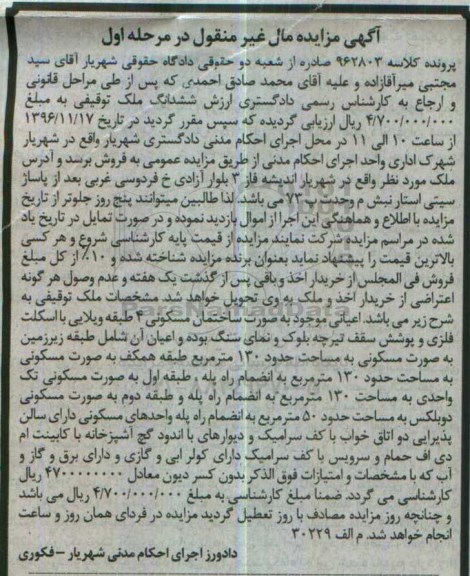 آگهی مزایده مال غیر منقول در مرحله اول
پرونده کلاسه ۹۶۲۸۰۳ صادره از شعبه دو حقوقی دادگاه حقوقی شهریار آقای سید
مجتبی میرآقازاده و علیه آقای محمد صادق احمدی که پس از طی مراحل قانونی
و ارجاع به کارشناس رسمی دادگستری ارزش ششدانگ ملک توقیفی به مبلغ
۴/۷۰۰/۰۰۰/۰۰۰ ریال ارزیابی گردیده که سپس مقرر گردید در تاریخ ۱۳۹۶/۱۱/۱۷
از ساعت ۱۰ الی ۱۱ در محل اجرای احکام مدنی دادگستری شهریار واقع در شهریار
شهرک اداری واحد اجرای احکام مدنی از طریق مزایده عمومی به فروش برسد و آدرس
ملک مورد نظر واقع در شهریار اندیشه فاز ۳ بلوار آزادی خ فردوسی غربی بعد از پاساژ
سیتی استار نبش م وحدت پ ۷۲ می باشد. لذا طالبین میتوانند پنج روز جلوتر از تاریخ
مزایده با اطلاع و هماهنگی این اجرا از اموال بازدید نموده و در صورت تمایل در تاریخ یاد
شده در مراسم مزایده شرکت نمایند مزایده از قیمت پایه کارشناسی شروع و هر کسی
بالاترین قیمت را پیشنهاد نماید بعنوان برنده مزایده شناخته شده و ۱۰٪ از کل مبلغ
فروش فی المجلس از خریدار اخذ و باقی پس از گذشت یک هفته و عدم وصول هر گونه
اعتراضی از خریدار اخذ و ملک به وی تحویل خواهد شد. مشخصات ملک توقیفی به
شرح زیر می باشد. اعیانی موجود به صورت ساختمان مسکونی ۴ طبقه ویلایی با اسکلت
فلزی و پوشش سقف تیرچه بلوک و نمای سنگ بوده و اعیان آن شامل طبقه زیرزمین
به صورت مسکونی به مساحت حدود ۱۳۰ مترمربع طبقه همکف به صورت مسکونی
به مساحت حدود ۱۳۰ مترمربع به انضمام راه پله و طبقه اول به صورت مسکونی تک
واحدی به مساحت ۱۳۰ مترمربع به انضمام راه پله و طبقه دوم به صورت مسکونی
دوبلکس به مساحت حدود ۵۰ مترمربع به انضمام راه پله واحدهای مسکونی دارای سالن
پذیرایی دو اتاق خواب با کف سرامیک و دیوارهای با اندود گچ آشپزخانه با کابینت ام
دی اف حمام و سرویس با کف سرامیک دارای کولر ابی و گازی و دارای برق و گاز و
آب که با مشخصات و امتیازات فوق الذکر بدون کسر دیون معادل ۴۷۰۰۰۰۰۰۰۰ ریال
کارشناسی می گردد. ضمنا مبلغ کارشناسی به مبلغ ۴/۷۰۰/۰۰۰/۰۰۰ ریال می باشد
و چنانچه روز مزایده مصادف با روز تعطیل گردید مزایده در فردای همان روز و ساعت
انجام خواهد شد. م الف ۳۰۲۲۹
دادورز اجرای احکام مدنی شهریار - فکوری